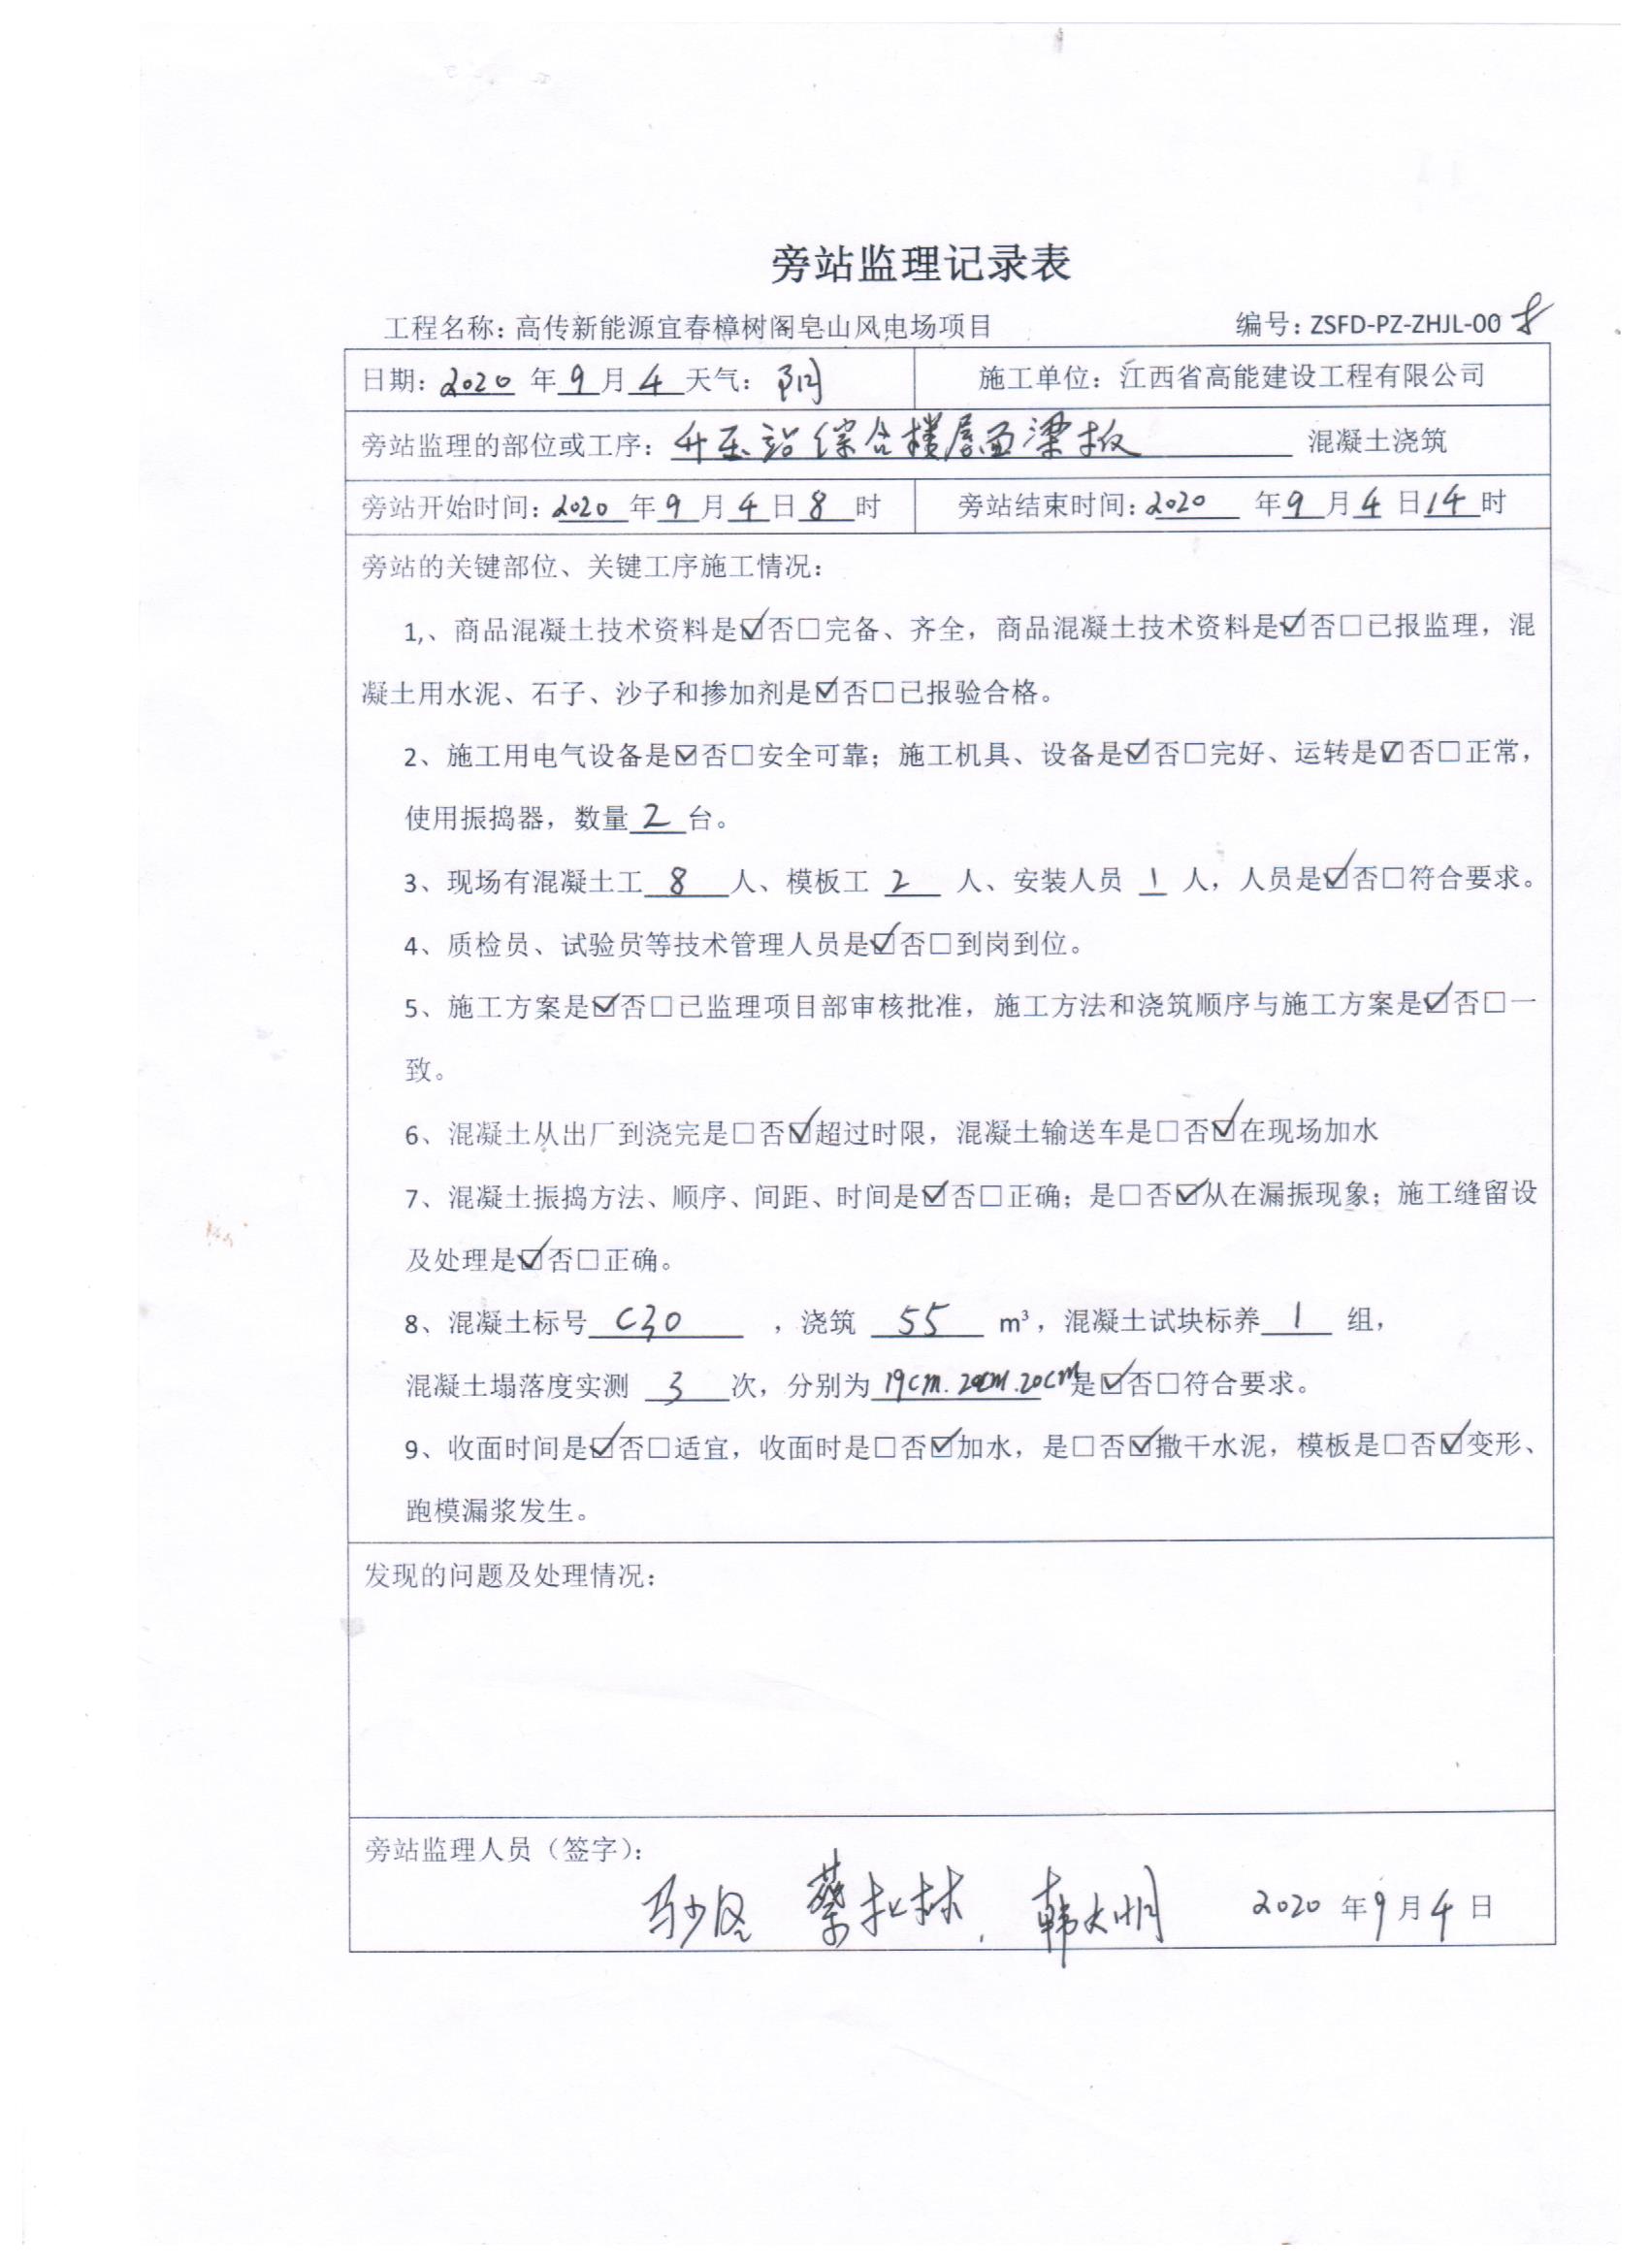 旁站监理记录表
工程名称：高传新能源宜春樟树阁皂山风电场项目 编号：ZSFD-PZ-ZHJL-008
日期：2020 年 9 月 4 天气：阴 施工单位：江西省高能建设工程有限公司
旁站监理的部位或工序：升压站综合楼屋面梁板 混凝土浇筑
旁站开始时间：2020 年 9 月 4 日 8 时 旁站结束时间：2020 年 9 月 4 日 14 时
旁站的关键部位、关键工序施工情况：
1,、商品混凝土技术资料是☑否□完备、齐全，商品混凝土技术资料是☑否□已报监理，混
凝土用水泥、石子、沙子和掺加剂是☑否□已报验合格。
2、施工用电气设备是☑否□安全可靠；施工机具、设备是☑否□完好、运转是☑否□正常，
使用振捣器，数量 2 台。
3、现场有混凝土工 8 人、模板工 2 人、安装人员 1 人，人员是☑否□符合要求。
4、质检员、试验员等技术管理人员是☑否□到岗到位。
5、施工方案是☑否□已监理项目部审核批准，施工方法和浇筑顺序与施工方案是☑否□一
致。
6、混凝土从出厂到浇完是□否☑超过时限，混凝土输送车是□否☑在现场加水
7、混凝土振捣方法、顺序、间距、时间是☑否□正确；是□否☑从在漏振现象；施工缝留设
及处理是☑否□正确。
8、混凝土标号 C30 ，浇筑 55 m³，混凝土试块标养 1 组，
混凝土塌落度实测 3 次，分别为 19cm.20cm.20cm 是☑否□符合要求。
9、收面时间是☑否□适宜，收面时是□否☑加水，是□否☑撒干水泥，模板是□否☑变形、
跑模漏浆发生。
发现的问题及处理情况：
旁站监理人员（签字）：
韩大明 2020 年 9 月 4 日